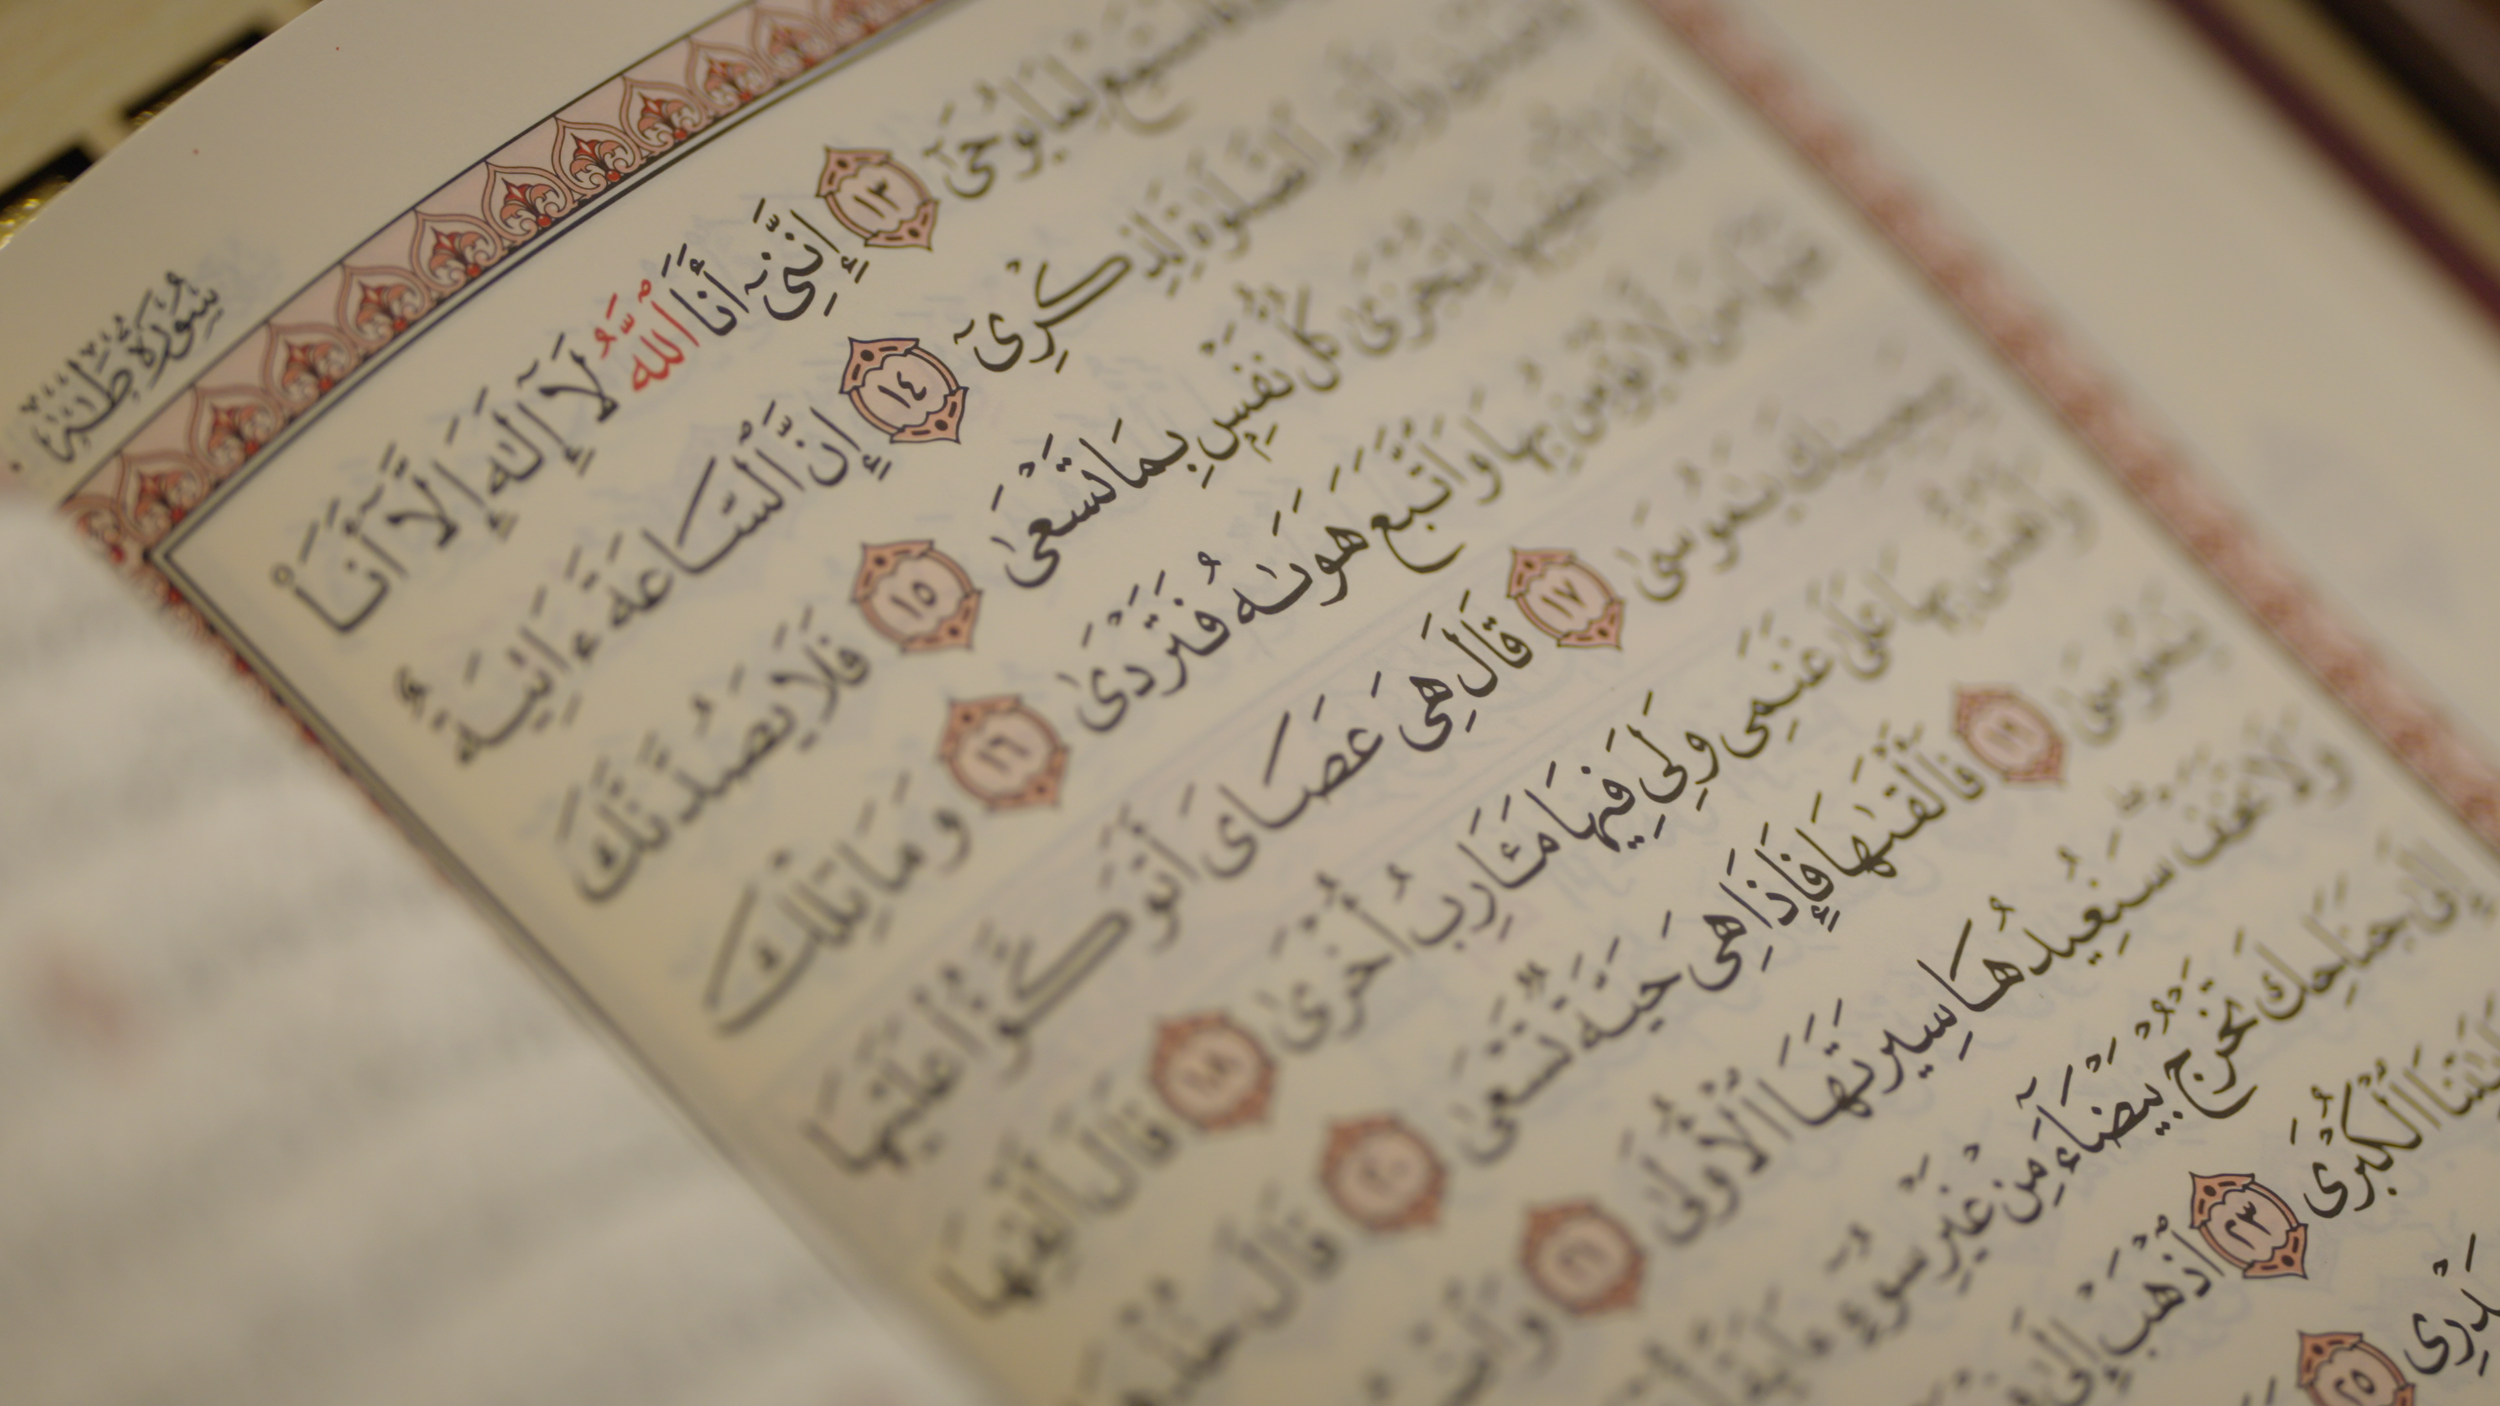 سُورَةُ طه
فَٱسْتَمِعْ لِمَا يُوحَىٰٓ ١٣ إِنَّنِىٓ أَنَا ٱللَّهُ لَآ إِلَٰهَ إِلَّآ أَنَا۠
وَأَقِمِ ٱلصَّلَوٰةَ لِذِكْرِىٓ ١٤ إِنَّ ٱلسَّاعَةَ ءَاتِيَةٌ
أَكَادُ أُخْفِيهَا لِتُجْزَىٰ كُلُّ نَفْسٍۭ بِمَا تَسْعَىٰ ١٥ فَلَا يَصُدَّنَّكَ
عَنْهَا مَن لَّا يُؤْمِنُ بِهَا وَٱتَّبَعَ هَوَىٰهُ فَتَرْدَىٰ ١٦ وَمَا تِلْكَ
بِيَمِينِكَ يَٰمُوسَىٰ ١٧ قَالَ هِىَ عَصَاىَ أَتَوَكَّؤُا۟ عَلَيْهَا
وَأَهُشُّ بِهَا عَلَىٰ غَنَمِى وَلِىَ فِيهَا مَـَٔارِبُ أُخْرَىٰ ١٨ قَالَ أَلْقِهَا
يَٰمُوسَىٰ ١٩ فَأَلْقَىٰهَا فَإِذَا هِىَ حَيَّةٌ تَسْعَىٰ ٢٠ قَالَ خُذْهَا
وَلَا تَخَفْ سَنُعِيدُهَا سِيرَتَهَا ٱلْأُولَىٰ ٢١ وَٱضْمُمْ
إِلَىٰ جَنَاحِكَ تَخْرُجْ بَيْضَآءَ مِنْ غَيْرِ سُوٓءٍ ءَايَةً
ٱلْكُبْرَى ٢٣ ٱذْهَبْ إِلَىٰ
صَدْرِى ٢٥